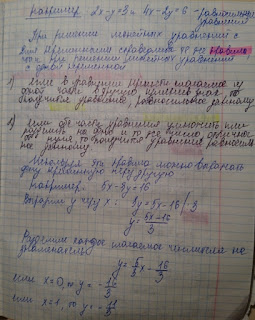 например 2x-y=3 и 4x-2y=6 - равносильные
уравнения
При решении линейных уравнений с
двумя переменными справедливы те же правила
что и при решении линейных уравнений
с одной переменной
1) если в уравнении перенести слагаемое из
одной части в другую, изменив знак то
получится уравнение, равносильное данному
2) если обе части уравнения умножить или
разделить на одно и то же число, отличное
от нуля то получится уравнение равносиль
ное данному
Используя эти правила можно выразить
одну переменную через другую
например. 5x-3y=16
Выразим y через x : 3y=5x-16 | :3
y= (5x-16)/3
Разделим каждое слагаемое числителя на
знаменатель
y= 5/3 x - 16/3
если x=0, то y= - 16/3
если x=1, то y= - 11/3